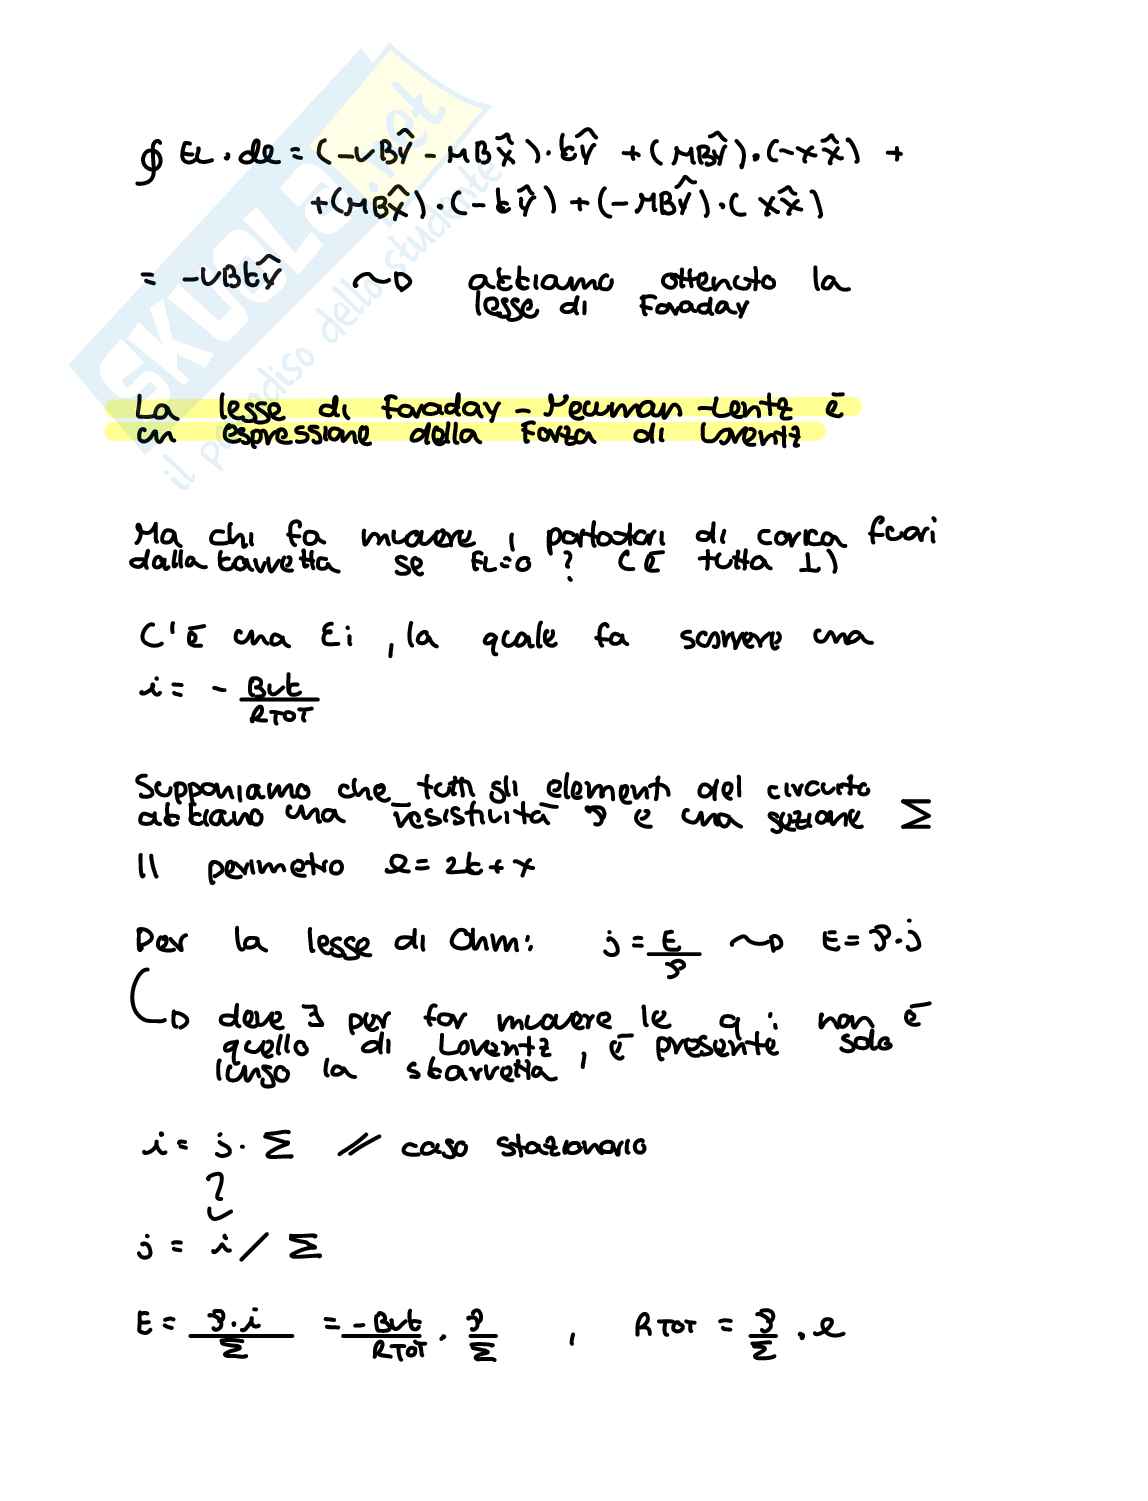 ∮ EL · dl = (-vBŷ - μBx̂) · bŷ + (μBŷ) · (-xx̂) +
+(μBx̂) · (-bŷ) + (-μBŷ) · (xx̂)
= -vBbŷ ~D abbiamo ottenuto la
legge di Faraday
La legge di Faraday - Neuman - Lentz è
un espressione della Forza di Lorentz
Ma chi fa muovere i portatori di carica fuori
dalla barretta se FL=0 ? (è tutta ⊥)
C'è una Ei , la quale fa scorrere una
i = - Bvb / RTOT
Supponiamo che tutti gli elementi del circuito
abbiano una resistività ρ e una sezione Σ
Il perimetro l = 2b + x
Per la legge di Ohm: j = E / ρ ~D E = ρ · j
D deve ∃ per far muovere le q : non è
quello di Lorentz , è presente solo
lungo la sbarretta
i = j · Σ // caso stazionario
j = i / Σ
E = ρ · i / Σ = -Bvb / RTOT · ρ / Σ , RTOT = ρ / Σ · l
SKUOLA.net
il paradiso dello studente